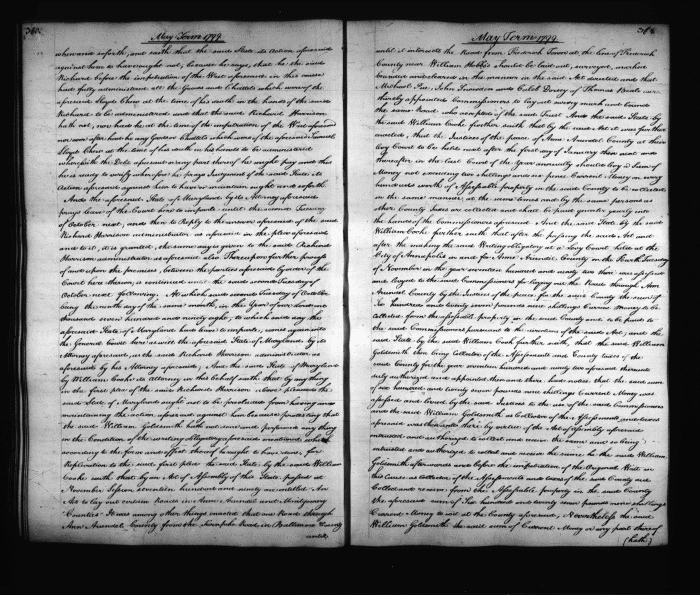 May Term 1799
whereunto inforth, and saith that the said State its Action aforesaid
against him to have ought not, because he says, that he the said
Richard before the impetration of the Writ aforesaid in this cause
had fully administered all the Goods and Chattels which were of the
aforesaid Lloyd Chew at the time of his death in the hands of the said
Richard to be administered and that the said Richard Harrison
hath not, nor had he at the time of the impetration of the Writ aforesaid
nor ever after had he any Goods or Chattels which were of the aforesaid Samuel
Lloyd Chew at the time of his death in his hands to be administered
wherewith the Debt aforesaid or any part thereof he might pay and this
he is ready to verify wherefore he prays Judgment if the said State its
Action aforesaid against him to have or maintain ought and soforth.
And the aforesaid State of Maryland by its Attorney aforesaid
prays leave of the Court here to imparle until the second Tuesday
of October next, and then to Reply to the answer aforesaid of the said
Richard Harrison administrator as aforesaid in the plea aforesaid
and to it, it is granted, the same day is given to the said Richard
Harrison administrator as aforesaid also. Thereupon further process
of and upon the premises, between the parties aforesaid by order of the
Court here thereon, is continued until the said second Tuesday of
October next following. At which said second Tuesday of October
being the ninth day of the same month, in the Year of our Lord one
thousand seven hundred and ninety eight, to which said day the
aforesaid State of Maryland had leave to imparle, comes again into
the General Court here as with the aforesaid State of Maryland by its
Attorney aforesaid, as the said Richard Harrison administrator as
aforesaid by his Attorney aforesaid, And the said State of Maryland
by William Cooke its Attorney in this behalf saith that by any thing
in the first plea of the said Richard Harrison above pleaded the
said State of Maryland ought not to be precluded from having and
maintaining the action aforesaid against him because protesting that
the said William Goldsmith hath not done and performed any thing
in the Condition of the writing obligatory aforesaid mentioned which
according to the form and effect thereof he ought to have done, for
Replication to the said first plea the said State by the said William
Cooke saith that by an Act of Assembly of this State passed at
November Session seventeen hundred and ninety entitled An
Act to lay out certain Roads in Anne Arundel and Montgomery
Counties It was among other things enacted that one Road through
Ann Arundel County from the Turnpike Road in Baltimore County
until
May Term 1799
until it intersects the Road from Frederick Town at the line of Frederick
County near William Hobbs's should be laid out, surveyed, marked
bounded and cleared in the manner in the said Act directed and that
Michael Pue, John Dorsey and Caleb Dorsey of Thomas Beale are
thereby appointed Commissioners to lay out survey mark and bound
the same Road who accepted of the said Trust And the said State by
the said William Cooke further saith that by the said Act it was further
enacted, that the Justices of the peace of Anne Arundel County at their
levy Court to be held next after the first day of January then next and
thereafter in the Levy Court of the Year annually should levy a Sum of
Money not exceeding two shillings and six pence Current Money on every
hundred worth of Assessable property in the said County to be collected
in the same manner, at the same times and by the same persons as
other County dues are collected and shall be paid quarter yearly into
the hands of the Commissioners aforesaid And the said State by the said
William Cooke further saith that after the passing the said Act and
after the making the said Writing obligatory at a Levy Court held at the
City of Annapolis in and for Anne Arundel County on the fourth Tuesday
of November in the year seventeen hundred and ninety two there was assessed
and levyed to the said Commissioners for laying out the Roads through Ann
Arundel County by the Justices of the peace for the said County the sum of
two hundred and twenty seven pounds nine shillings Current Money to be
collected from the assessable property in the said County and to be paid to
the said Commissioners pursuant to the intention of the said Act, and the
said State by the said William Cook further saith, that the said William
Goldsmith then being Collector of the Assessments and County taxes of the
said County for the year seventeen hundred and ninety two aforesaid thereunto
duly authorized and appointed then and there had notice that the said sum
of two hundred and twenty seven pounds nine shillings Current Money was
assessed and levied by the said Justices to the use of the said Commissioners
and the said William Goldsmith as Collector of the Assessments and taxes
aforesaid was then and there by virtue of the Act of Assembly aforesaid
intrusted and authorized to collect and receive the same and so being
intrusted and authorized to collect and receive the same he the said William
Goldsmith afterwards and before the impetration of the Original Writ in
this Cause as Collector of the Assessments and taxes of the said County did
Collect and receive from the Assessable property in the said County
the aforesaid sum of two hundred and twenty seven pounds nine shillings
Current Money to wit at the County aforesaid, Nevertheless the said
William Goldsmith the said sum of Current Money or any part thereof
(hath)